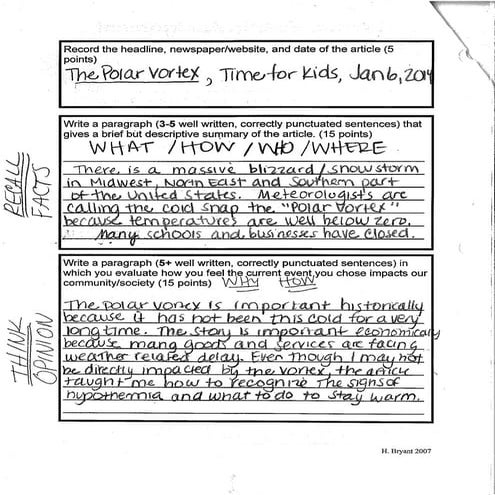 Record the headline, newspaper/website, and date of the article (5
points)
The Polar Vortex, Time for Kids, Jan 6, 2014
Write a paragraph (3-5 well written, correctly punctuated sentences) that
gives a brief but descriptive summary of the article. (15 points)
WHAT / HOW / WHO / WHERE
RECALL
FACTS
There is a massive blizzard/snowstorm
in Midwest, North East and Southern part
of the United States. Meteorologist's are
calling the cold snap the "Polar Vortex"
because temperatures are well below zero.
Many schools and businesses have closed.
Write a paragraph (5+ well written, correctly punctuated sentences) in
which you evaluate how you feel the current event you chose impacts our
community/society (15 points) WHY HOW
THINK
OPINION
The Polar Vortex is important historically
because it has not been this cold for a very
long time. The story is important economically
because many goods and services are facing
weather related delay. Even though I may not
be directly impacted by the vortex, the article
taught me how to recognize the signs of
hypothemia and what to do to stay warm.
H. Bryant 2007